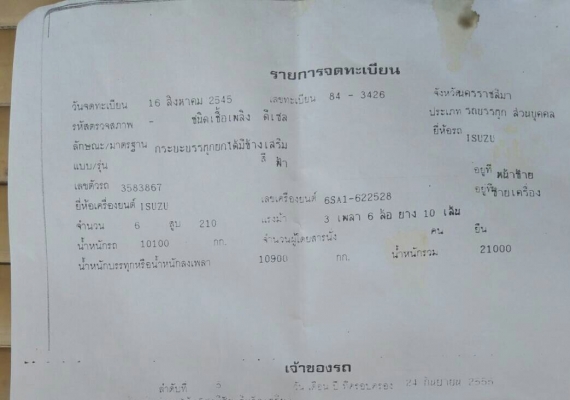 รายการจดทะเบียน
วันจดทะเบียน 16 สิงหาคม 2545 เลขทะเบียน 84 - 3426 จังหวัดนครราชสีมา
รหัสตรวจสภาพ - ชนิดเชื้อเพลิง ดีเซล ประเภท รถบรรทุก ส่วนบุคคล
ลักษณะ/มาตรฐาน กระบะบรรทุกยกได้มีข้างเสริม ยี่ห้อรถ ISUZU
แบบ/รุ่น สี ฟ้า
เลขตัวรถ 3583867 อยู่ที่ หน้าซ้าย
ยี่ห้อเครื่องยนต์ ISUZU เลขเครื่องยนต์ 6SA1-622528 อยู่ที่ ซ้ายเครื่อง
จำนวน 6 สูบ 210 แรงม้า 3 เพลา 6 ล้อ ยาง 10 เส้น
น้ำหนักรถ 10100 กก. จำนวนผู้โดยสารนั่ง คน ยืน
น้ำหนักบรรทุกหรือน้ำหนักลงเพลา 10900 กก. น้ำหนักรวม 21000
เจ้าของรถ
ลำดับที่ วัน เดือน ปี ที่ครอบครอง 24 กันยายน